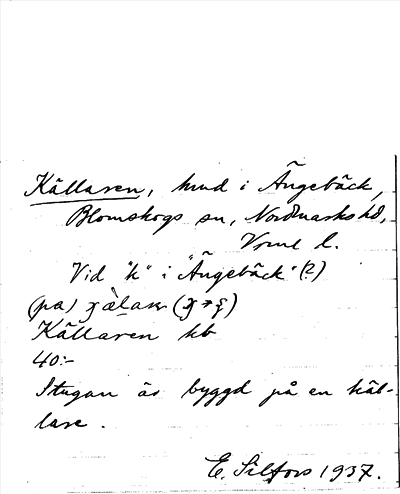 Källaren, hmd i Ängebäck,
Blomskogs sn, Nordmarks hd,
Vrml l.
Vid "k" i "Ängebäck" (?)
(pa)
Källaren hb
40:-
Stugan är byggd på en käl-
lare.
E. Silfors 1937.